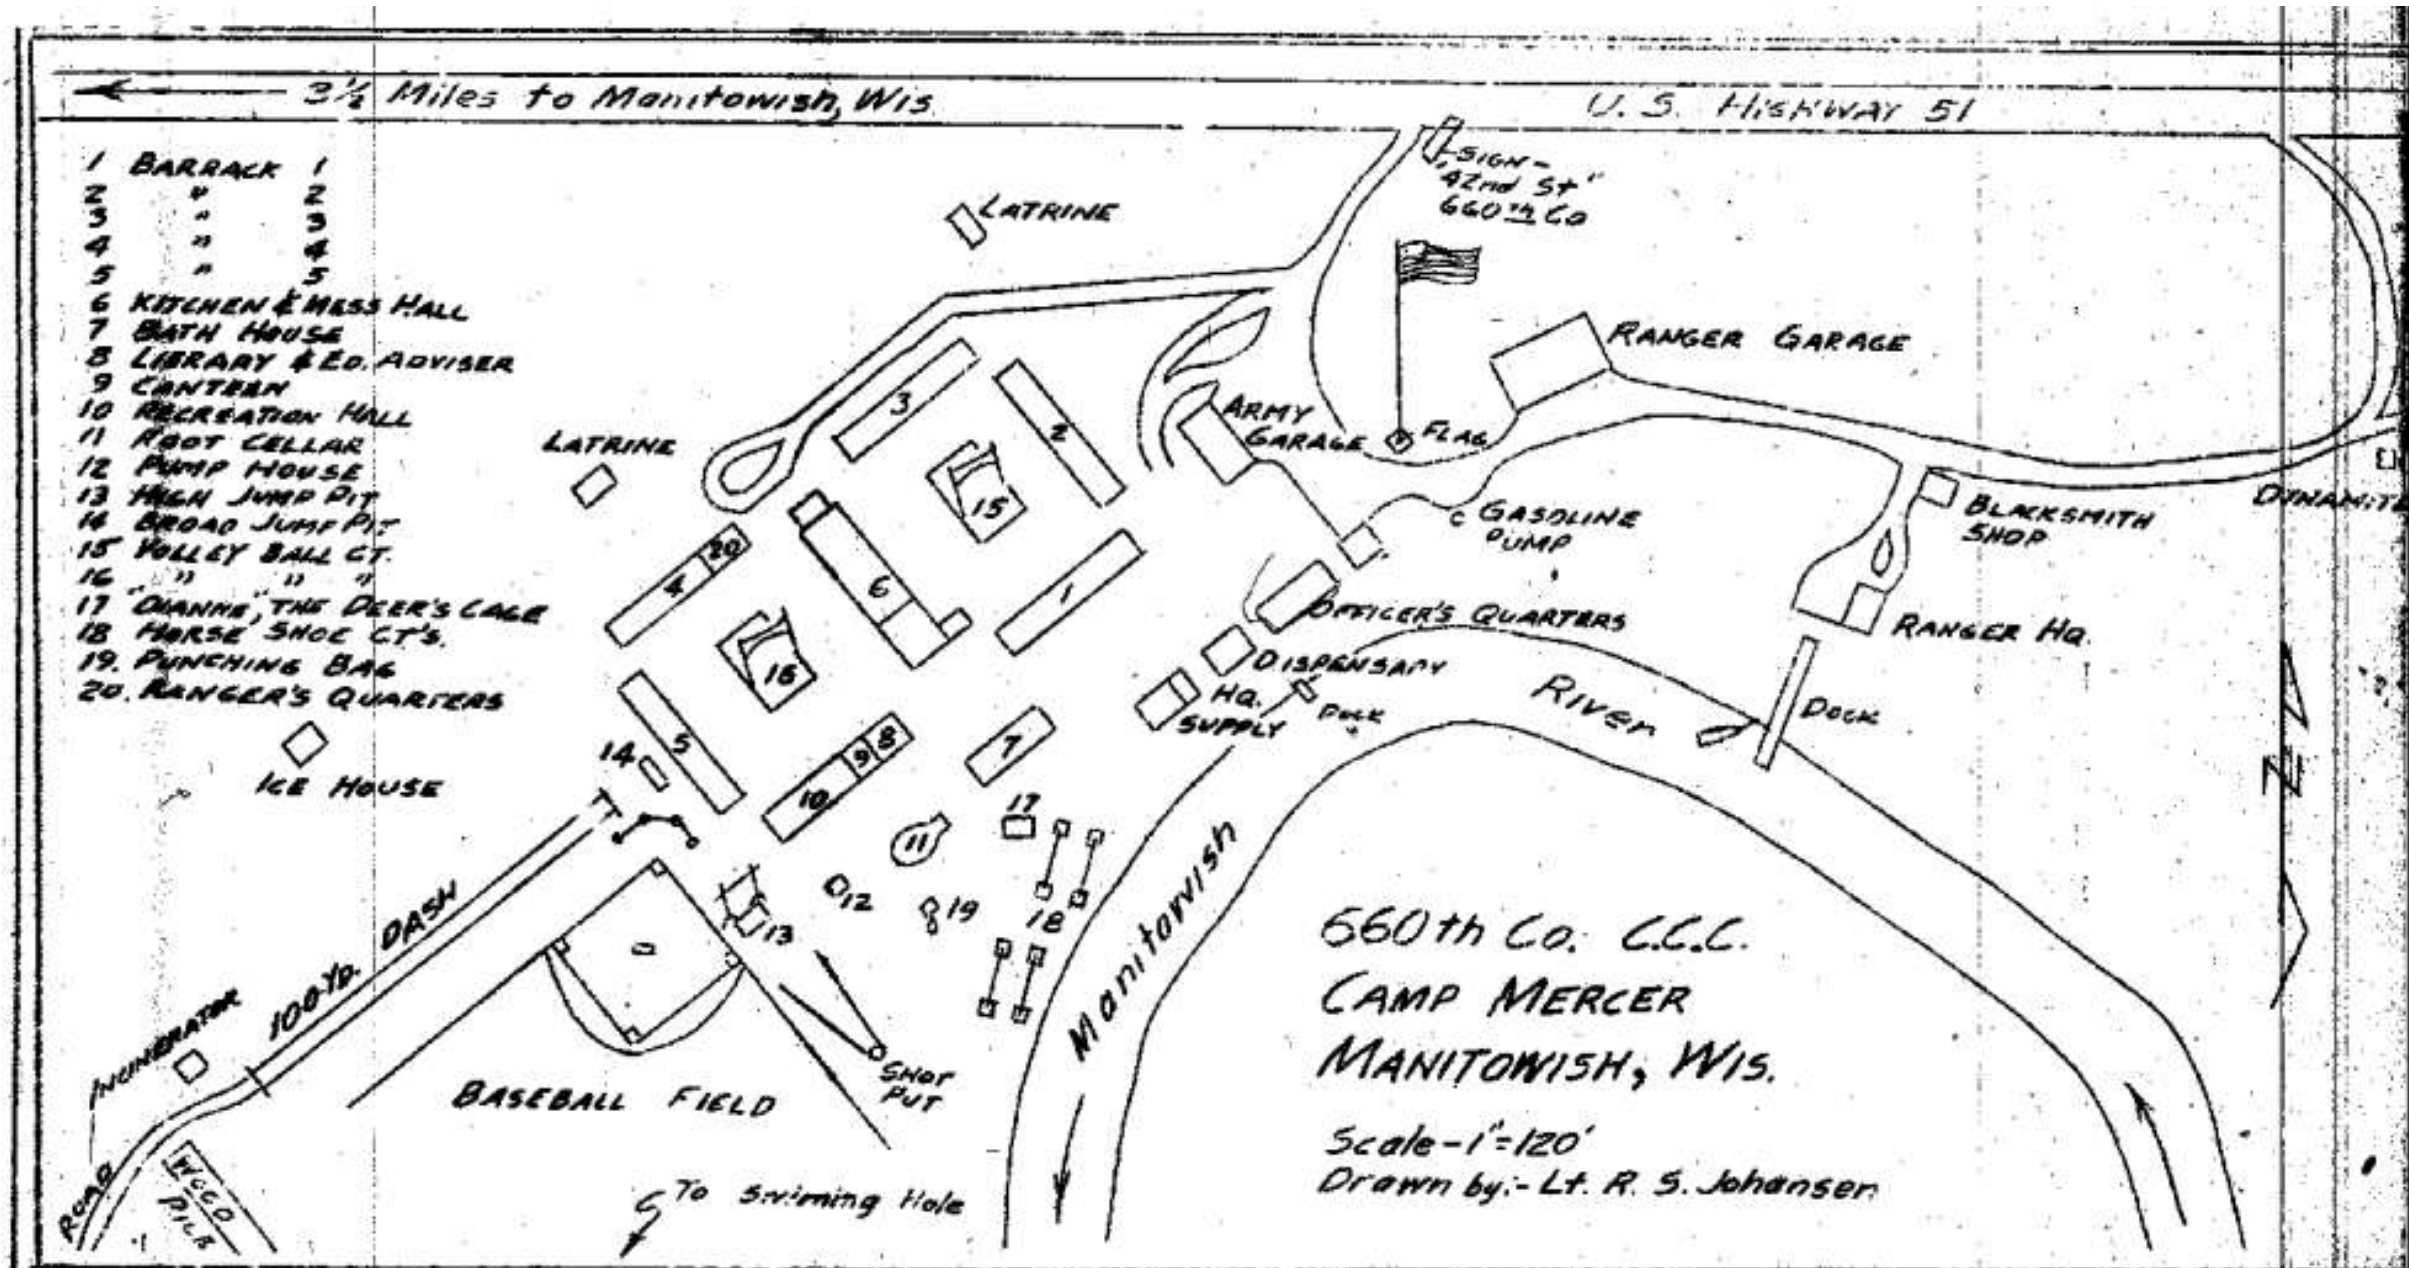 3½ Miles to Manitowish, Wis.
U. S. HIGHWAY 51
1 BARRACK 1
2 " 2
3 " 3
4 " 4
5 " 5
6 KITCHEN & MESS HALL
7 BATH HOUSE
8 LIBRARY & ED. ADVISER
9 CANTEEN
10 RECREATION HALL
11 ROOT CELLAR
12 PUMP HOUSE
13 HIGH JUMP PIT
14 BROAD JUMP PIT
15 VOLLEY BALL CT.
16 " " "
17 "DIANNE", THE DEER'S CAGE
18 HORSE SHOE CT'S.
19. PUNCHING BAG
20. RANGER'S QUARTERS
SIGN-
"42nd St"
660th Co
LATRINE
LATRINE
RANGER GARAGE
ARMY
GARAGE
FLAG
GASOLINE
PUMP
BLACKSMITH
SHOP
DYNAMITE
OFFICER'S QUARTERS
RANGER HQ.
DISPENSARY
HQ.
SUPPLY
DOCK
River
DOCK
3
2
15
20
4
6
1
16
5
14
8
9
10
7
17
11
12
19
18
13
ICE HOUSE
100 YD. DASH
INCINERATOR
BASEBALL FIELD
SHOT
PUT
Manitowish
N
ROAD
WOOD
PILE
To Swiming Hole
660th Co. C.C.C.
CAMP MERCER
MANITOWISH, WIS.
Scale-1"=120'
Drawn by:- Lt. R. S. Johansen